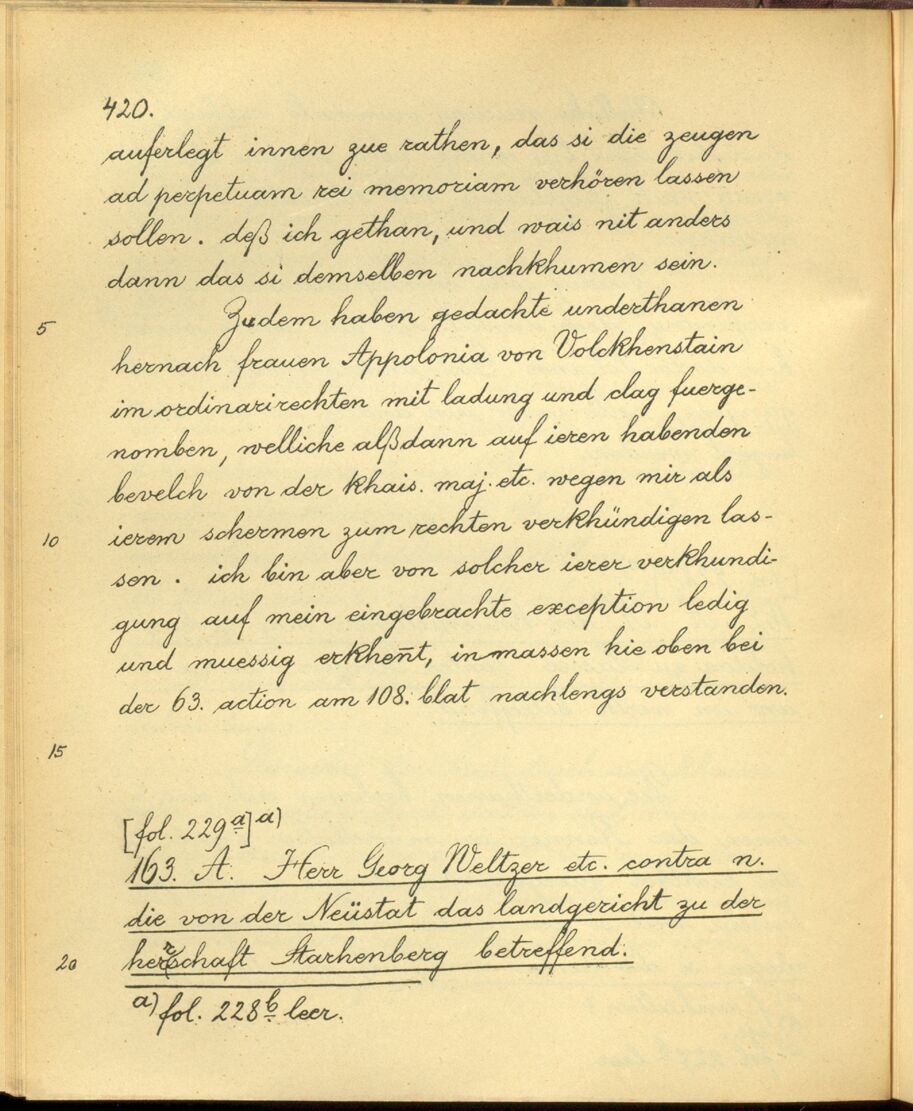 420.
auferlegt innen zue rathen, das si die zeugen
ad perpetuam rei memoriam verhören lassen
sollen. deß ich gethan, und wais nit anders
dann das si demselben nachkhumen sein.
5 Zudem haben gedachte underthanen
hernach frauen Appolonia von Volckhenstain
im ordinarirechten mit ladung und clag fuerge-
nomben, welliche alßdann auf ieren habenden
bevelch von der khais. maj. etc. wegen mir als
10 ierem schermen zum rechten verkhündigen las-
sen. ich bin aber von solcher ierer verkhundi-
gung auf mein eingebrachte exception ledig
und muessig erkhen̄t, inmassen hie oben bei
der 63. action am 108. blat nachlengs verstanden.
15
[fol. 229a]a)
163. A. Herr Georg Weltzer etc. contra n.
die von der Neüstat das landgericht zu der
20 herrschaft Starhenberg betreffend.
a) fol. 228b leer.